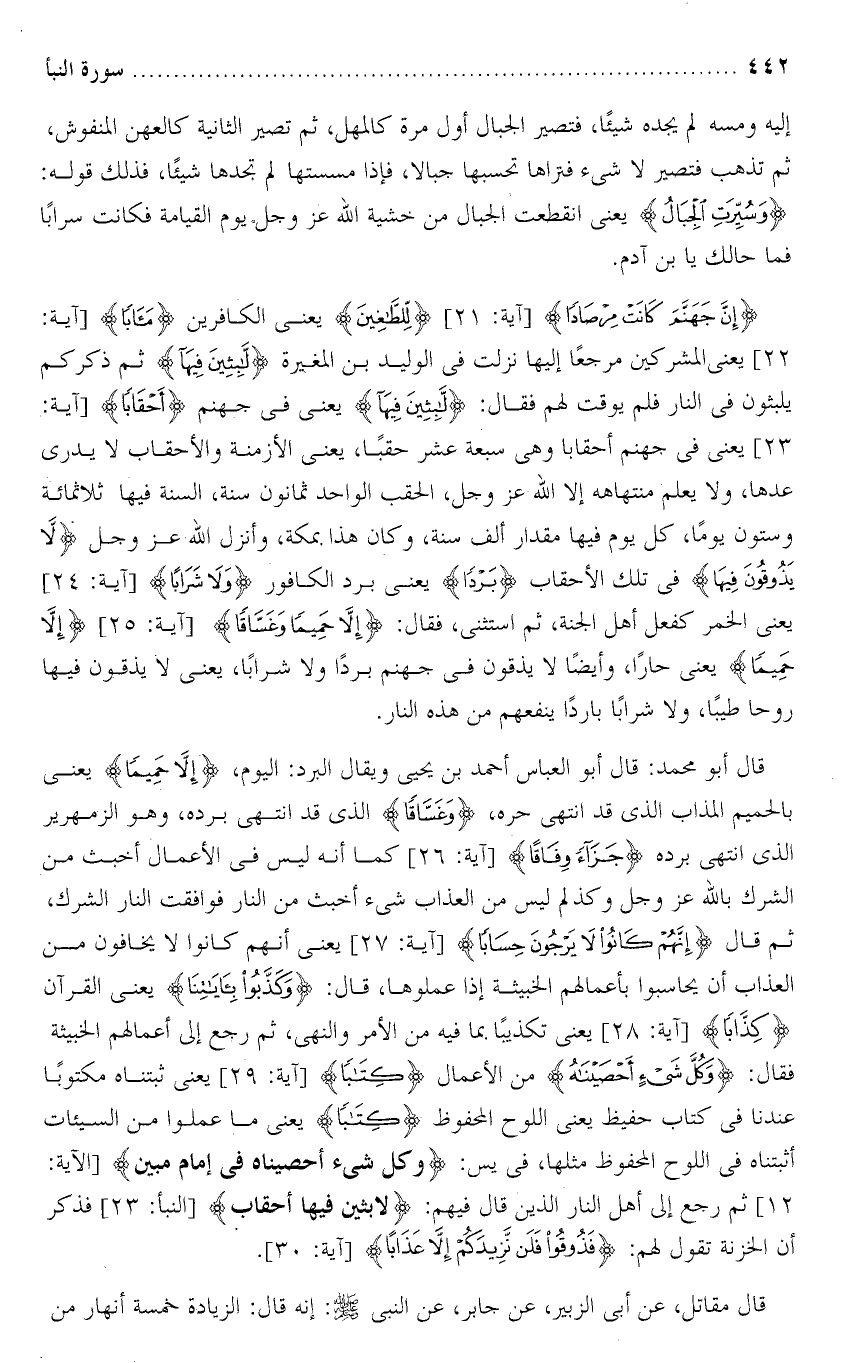 ٤٤٢ ........................................................................ سورة النبأ
إليه ومسه لم يجده شيئًا، فتصير الجبال أول مرة كالمهل، ثم تصير الثانية كالعهن المنفوش،
ثم تذهب فتصير لا شىء فتراها تحسبها جبالا، فإذا مسستها لم تجدها شيئًا، فذلك قوله:
﴿وَسُيِّرَتِ ٱلْجِبَالُ﴾ يعنى انقطعت الجبال من خشية الله عز وجل يوم القيامة فكانت سرابًا
فما حالك يا بن آدم.
﴿إِنَّ جَهَنَّمَ كَانَتْ مِرْصَادًا﴾ [آية: ٢١] ﴿لِّلطَّٰغِينَ﴾ يعنى الكافرين ﴿مَـَٔابًا﴾ [آية:
٢٢] يعنى المشركين مرجعًا إليها نزلت فى الوليد بن المغيرة ﴿لَّٰبِثِينَ فِيهَآ﴾ ثم ذكركم
يلبثون فى النار فلم يوقت لهم فقال: ﴿لَّٰبِثِينَ فِيهَآ﴾ يعنى فى جهنم ﴿أَحْقَابًا﴾ [آية:
٢٣] يعنى فى جهنم أحقابا وهى سبعة عشر حقبًا، يعنى الأزمنة والأحقاب لا يدرى
عدها، ولا يعلم منتهاهه إلا الله عز وجل، الحقب الواحد ثمانون سنة، السنة فيها ثلاثمائة
وستون يومًا، كل يوم فيها مقدار ألف سنة، وكان هذا بمكة، وأنزل الله عز وجل ﴿لَّا
يَذُوقُونَ فِيهَا﴾ فى تلك الأحقاب ﴿بَرْدًا﴾ يعنى برد الكافور ﴿وَلَا شَرَابًا﴾ [آية: ٢٤]
يعنى الخمر كفعل أهل الجنة، ثم استثنى، فقال: ﴿إِلَّا حَمِيمًا وَغَسَّاقًا﴾ [آية: ٢٥] ﴿إِلَّا
حَمِيمًا﴾ يعنى حارًا، وأيضًا لا يذقون فى جهنم بردًا ولا شرابًا، يعنى لا يذقون فيها
روحا طيبًا، ولا شرابًا باردًا ينفعهم من هذه النار.
قال أبو محمد: قال أبو العباس أحمد بن يحيى ويقال البرد: اليوم، ﴿إِلَّا حَمِيمًا﴾ يعنى
بالحميم المذاب الذى قد انتهى حره، ﴿وَغَسَّاقًا﴾ الذى قد انتهى برده، وهو الزمهرير
الذى انتهى برده ﴿جَزَآءً وِفَاقًا﴾ [آية: ٢٦] كما أنه ليس فى الأعمال أخبث من
الشرك بالله عز وجل وكذلم ليس من العذاب شىء أخبث من النار فوافقت النار الشرك،
ثم قال ﴿إِنَّهُمْ كَانُوا۟ لَا يَرْجُونَ حِسَابًا﴾ [آية: ٢٧] يعنى أنهم كانوا لا يخافون من
العذاب أن يحاسبوا بأعمالهم الخبيثة إذا عملوها، قال: ﴿وَكَذَّبُوا۟ بِـَٔايَٰتِنَا﴾ يعنى القرآن
﴿كِذَّابًا﴾ [آية: ٢٨] يعنى تكذيبًا بما فيه من الأمر والنهى، ثم رجع إلى أعمالهم الخبيثة
فقال: ﴿وَكُلَّ شَىْءٍ أَحْصَيْنَٰهُ﴾ من الأعمال ﴿كِتَٰبًا﴾ [آية: ٢٩] يعنى ثبتناه مكتوبًا
عندنا فى كتاب حفيظ يعنى اللوح المحفوظ ﴿كِتَٰبًا﴾ يعنى ما عملوا من السيئات
أثبتناه فى اللوح المحفوظ مثلها، فى يس: ﴿وكل شىء أحصيناه فى إمام مبين﴾ [الآية:
١٢] ثم رجع إلى أهل النار الذين قال فيهم: ﴿لابثين فيها أحقاب﴾ [النبأ: ٢٣] فذكر
أن الخزنة تقول لهم: ﴿فَذُوقُوا۟ فَلَن نَّزِيدَكُمْ إِلَّا عَذَابًا﴾ [آية: ٣٠].
قال مقاتل، عن أبى الزبير، عن جابر، عن النبى ﷺ: إنه قال: الزيادة خمسة أنهار من